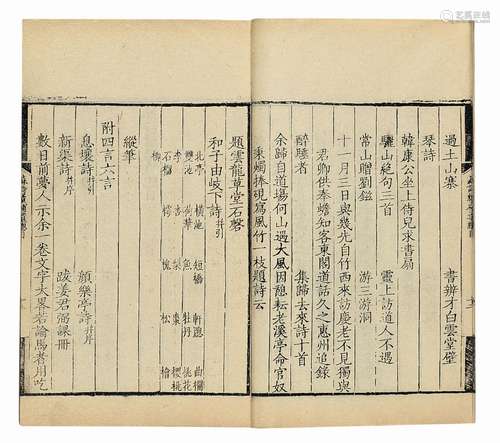 過土山寨　書辨才白雲堂壁
琴詩
韓康公坐上侍兒求書扇
驪山絕句三首　靈上訪道人不遇
常山贈劉鎡　游三游洞
十一月三日與幾先自竹西來訪慶老不見獨與
君卿供奉蟾知客東閣道話久之惠州追錄
醉睡者　集歸去來詩十首
余歸自道場何山遇大風因憩耘老溪亭命官奴
秉燭捧硯寫風竹一枝題詩云
題雲龍草堂石磬
和子由岐下詩并引
北亭　橫池　短橋　軒窻　曲檻
雙池　荷葉　魚　牡丹　桃花
李　杏　梨　棗　櫻桃
石榴　樗　槐　松　檜
柳
縱筆
附四言六言
息壤詩并引　顏樂亭詩并序
新渠詩并序　跋姜君弼課冊
數日前夢人示余一卷文字大畧若諭馬者用吃
艺狐在线